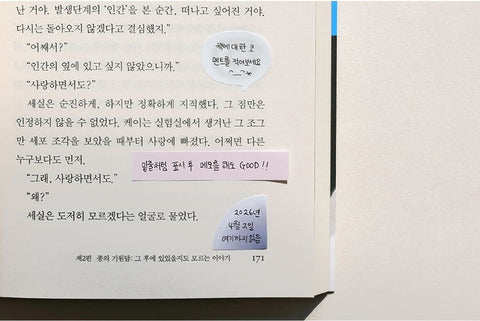 난 거야. 발생단계의 ‘인간’을 본 순간, 떠나고 싶어진 거야.
다시는 돌아오지 않겠다고 결심했지.”
“어째서?”
“인간의 옆에 있고 싶지 않았으니까.”
“사랑하면서도?”
세실은 순진하게, 하지만 정확하게 지적했다. 그 점만은
인정하지 않을 수 없었다. 케이는 실험실에서 생겨난 그 조그
만 세포 조각을 보았을 때부터 사랑에 빠졌다. 어쩌면 다른
누구보다도 먼저.
“그래. 사랑하면서도.”
“왜?”
세실은 도저히 모르겠다는 얼굴로 물었다.
책에 대한 코
멘트를 적어보세요
^__^*
밑줄처럼 표시 후 메모를 해도 GOOD!!
2026년
4월 2일
여기까지 읽음
제2편 종의 기원담: 그 후에 있었을지도 모르는 이야기 171